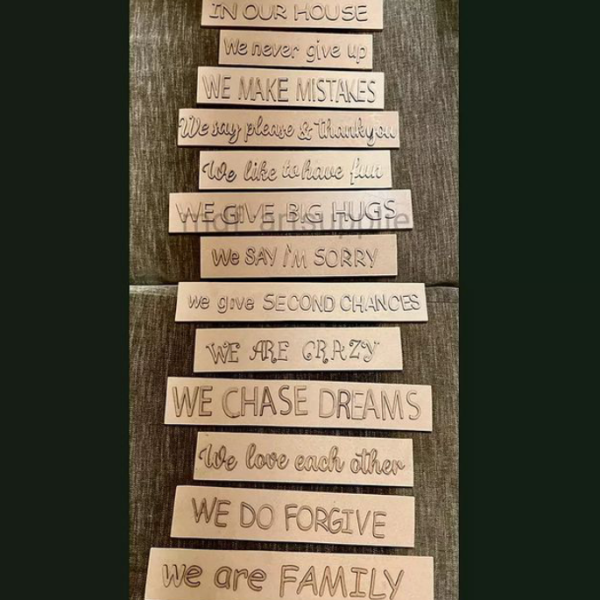 IN OUR HOUSE
We never give up
WE MAKE MISTAKES
We say please & thankyou
We like to have fun
WE GIVE BIG HUGS
We SAY i'M SORRY
we give SECOND CHANCES
WE ARE CRAZY
WE CHASE DREAMS
We love each other
WE DO FORGIVE
we are FAMILY